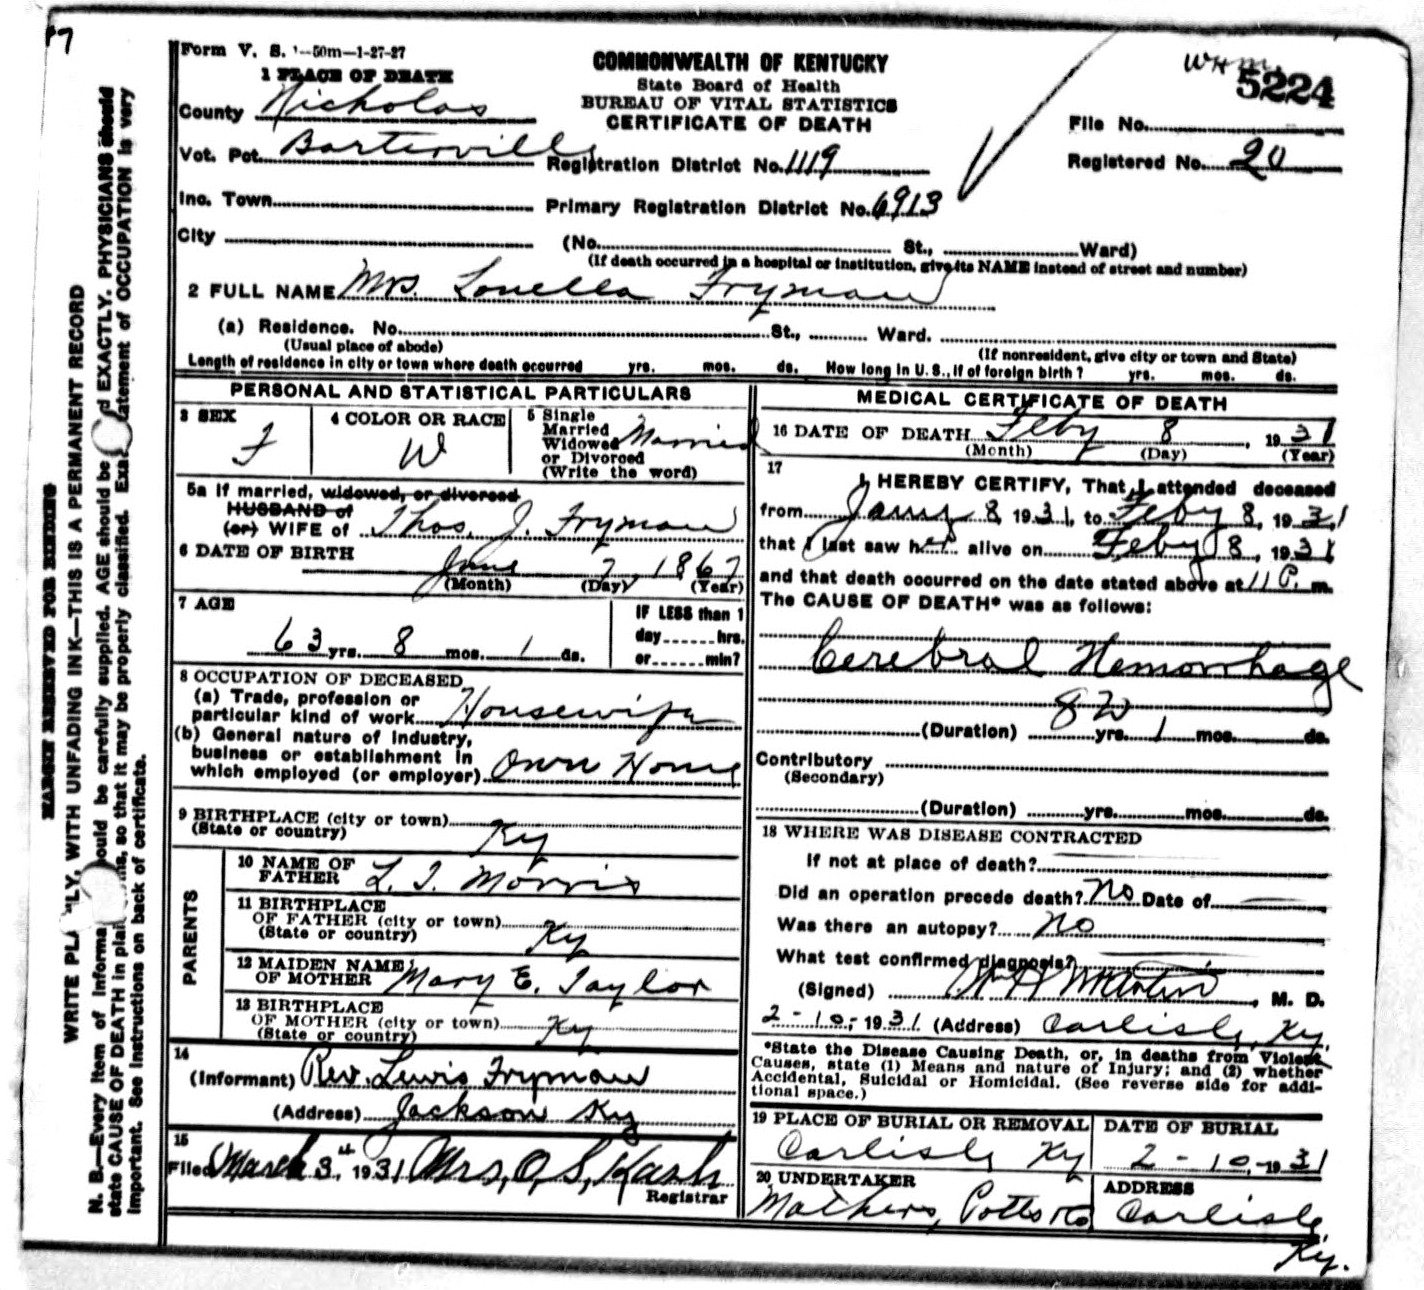 Form V. S. 1—50m—1-27-27
COMMONWEALTH OF KENTUCKY
State Board of Health
BUREAU OF VITAL STATISTICS
CERTIFICATE OF DEATH
WHM.
5224
File No.
Registered No. 20
1 PLACE OF DEATH
County Nicholas
Vot. Pct. Barterville
Registration District No. 1119
Inc. Town
Primary Registration District No. 6913
City (No. St., Ward)
(If death occurred in a hospital or institution, give its NAME instead of street and number)
2 FULL NAME Mrs. Louella Fryman
(a) Residence. No. St., Ward.
(Usual place of abode) (If nonresident, give city or town and State)
Length of residence in city or town where death occurred yrs. mos. ds. How long in U.S., if of foreign birth? yrs. mos. ds.
PERSONAL AND STATISTICAL PARTICULARS
3 SEX
F
4 COLOR OR RACE
W
5 Single
Married
Widowed
or Divorced
(Write the word)
Married
5a If married, widowed, or divorced
HUSBAND of
(or) WIFE of Thos. J. Fryman
6 DATE OF BIRTH
June 7, 1867
(Month) (Day) (Year)
7 AGE
63 yrs. 8 mos. 1 ds.
IF LESS than 1
day hrs.
or min?
8 OCCUPATION OF DECEASED
(a) Trade, profession or
particular kind of work Housewife
(b) General nature of industry,
business or establishment in
which employed (or employer) Own Home
9 BIRTHPLACE (city or town)
(State or country) Ky
PARENTS
10 NAME OF
FATHER L. T. Morris
11 BIRTHPLACE
OF FATHER (city or town)
(State or country) Ky
12 MAIDEN NAME
OF MOTHER Mary E. Taylor
13 BIRTHPLACE
OF MOTHER (city or town)
(State or country) Ky
14
(Informant) Rev. Lewis Fryman
(Address) Jackson Ky
15
Filed March 3, 1931 Mrs. O. S. Kash
Registrar
MEDICAL CERTIFICATE OF DEATH
16 DATE OF DEATH Feby 8, 1931
(Month) (Day) (Year)
17
I HEREBY CERTIFY, That I attended deceased
from Jany 8, 1931, to Feby 8, 1931
that I last saw her alive on Feby 8, 1931
and that death occurred on the date stated above at 11 P. m.
The CAUSE OF DEATH* was as follows:
Cerebral Hemorrhage
(Duration) yrs. 1 mos. ds.
Contributory
(Secondary)
(Duration) yrs. mos. ds.
18 WHERE WAS DISEASE CONTRACTED
If not at place of death?
Did an operation precede death? No Date of
Was there an autopsy? No
What test confirmed diagnosis?
(Signed) , M. D.
2-10-, 1931 (Address) Carlisle, Ky.
*State the Disease Causing Death, or, in deaths from Violent
Causes, state (1) Means and nature of Injury; and (2) whether
Accidental, Suicidal or Homicidal. (See reverse side for addi-
tional space.)
19 PLACE OF BURIAL OR REMOVAL
Carlisle Ky
DATE OF BURIAL
2-10-1931
20 UNDERTAKER
Mathers, Potts & Co
ADDRESS
Carlisle
Ky.
MARGIN RESERVED FOR BINDING
WRITE PLAINLY, WITH UNFADING INK—THIS IS A PERMANENT RECORD
N. B.—Every item of information should be carefully supplied. AGE should be stated EXACTLY. PHYSICIANS should
state CAUSE OF DEATH in plain terms, so that it may be properly classified. Exact statement of OCCUPATION is very
important. See instructions on back of certificate.